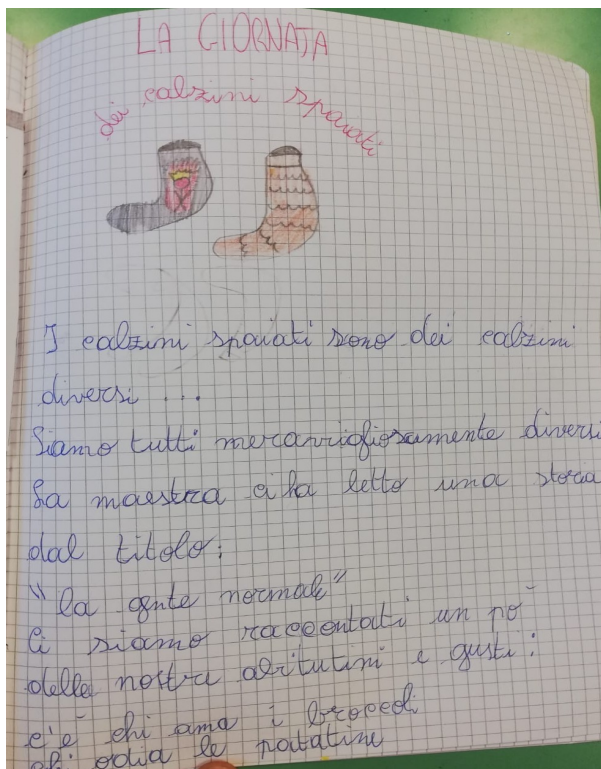 LA GIORNATA
dei calzini spaiati
I calzini spaiati sono dei calzini
diversi ...
Siamo tutti meravigliosamente diversi
La maestra ci ha letto una storia
dal titolo:
"la gente normale"
Ci siamo raccontati un po
delle nostre abitutini e gusti:
c'è chi ama i broccoli
chi odia le patatine